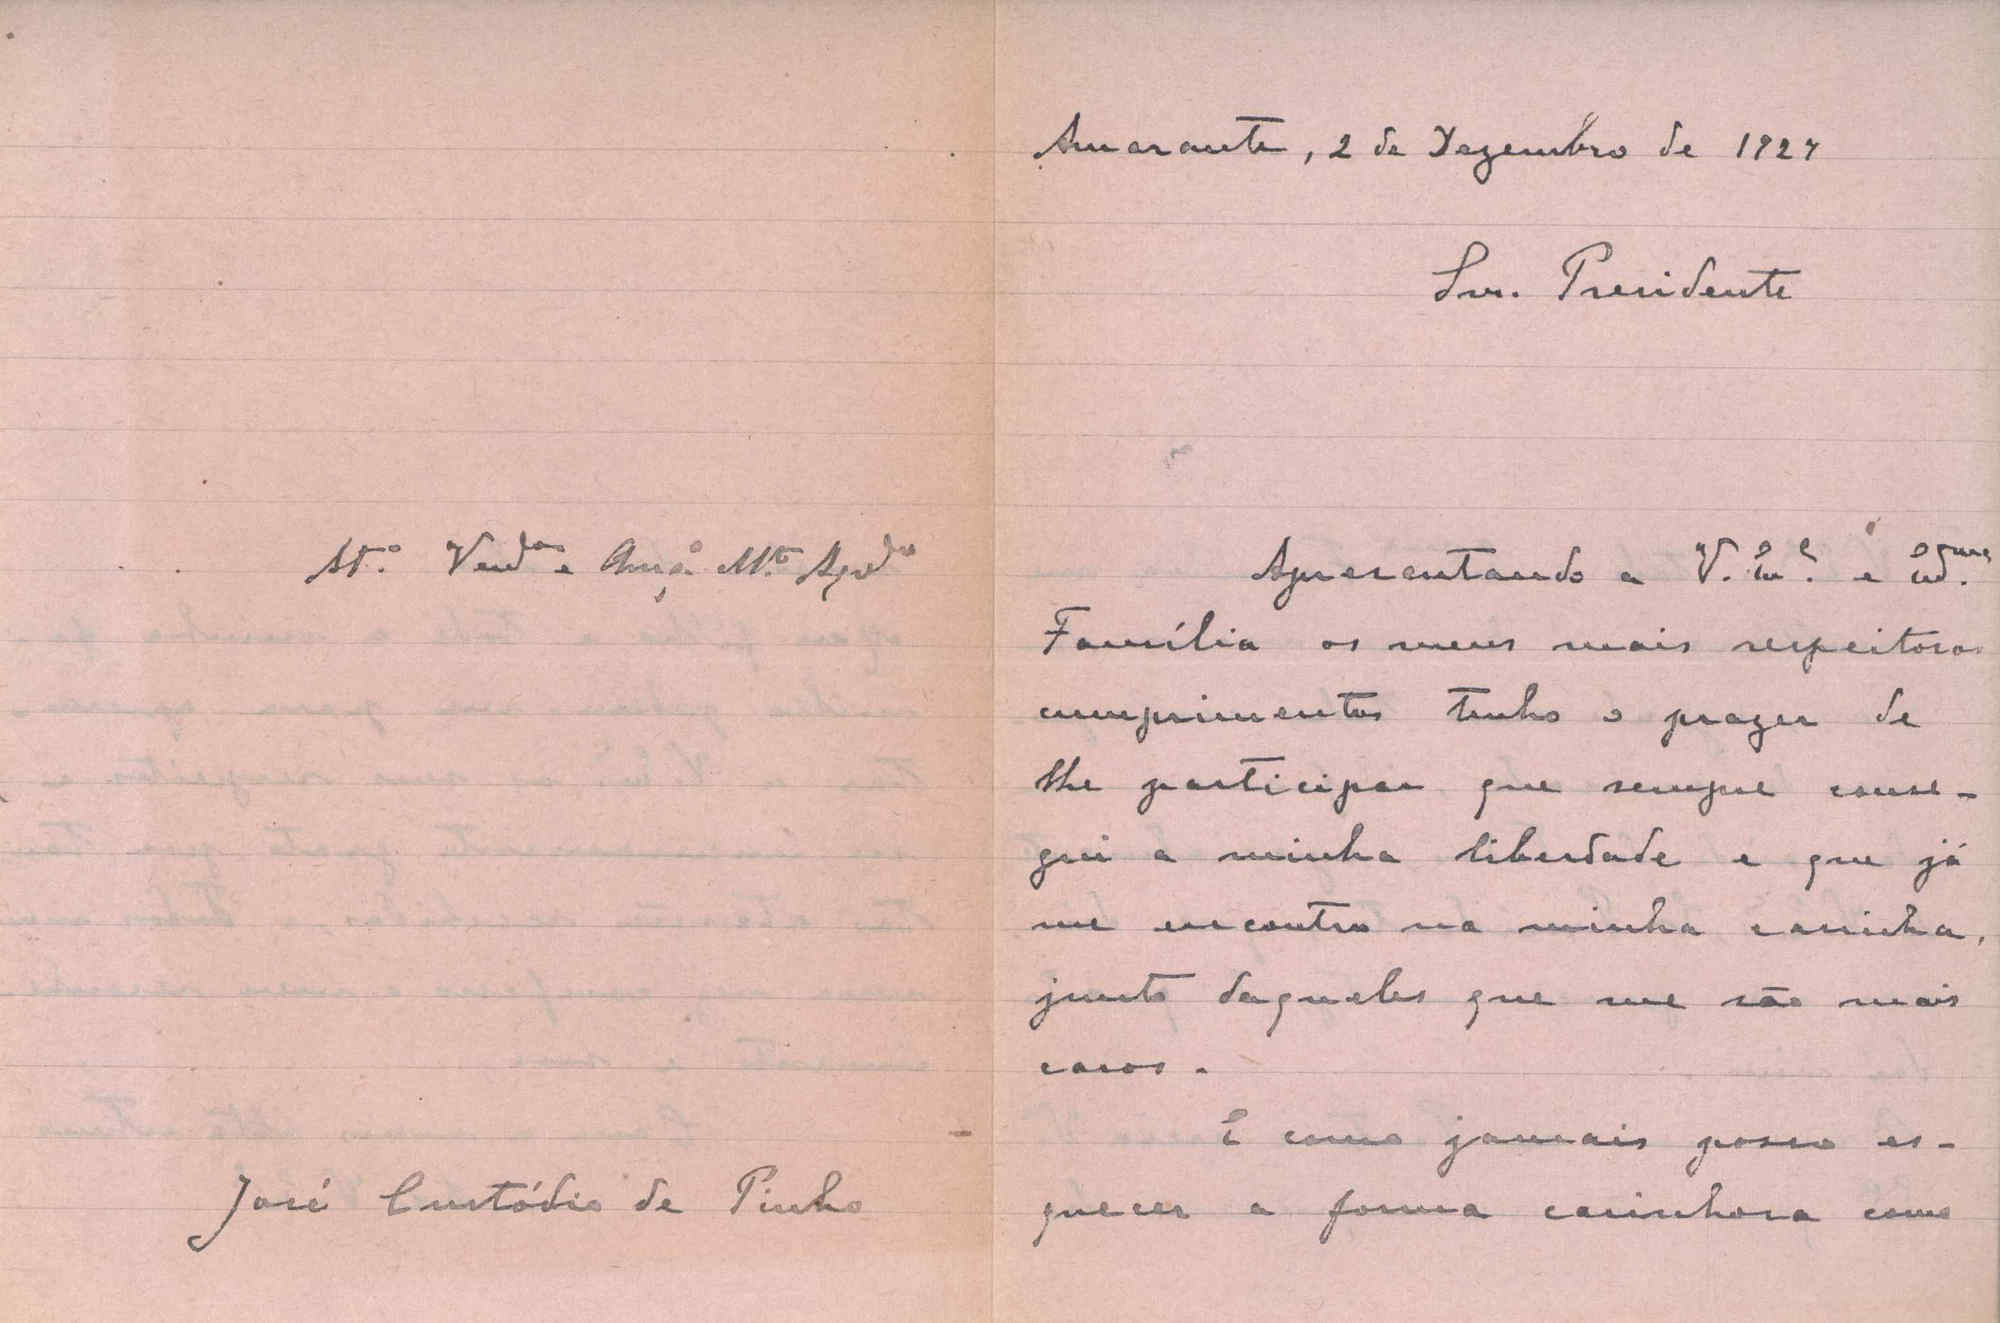 Amarante, 2 de Dezembro de 1927
Snr. Presidente
Apresentando a V. Ex.ª e Ex.ma
Família os meus mais respeitosos
cumprimentos tenho o prazer de
lhe participar que sempre conse-
gui a minha liberdade e que já
me encontro na minha casinha,
junto daqueles que me são mais
caros.
E como jamais posso es-
quecer a forma carinhosa como
At.º Vend.or e Am.º M.to
José Custódio de Pinho